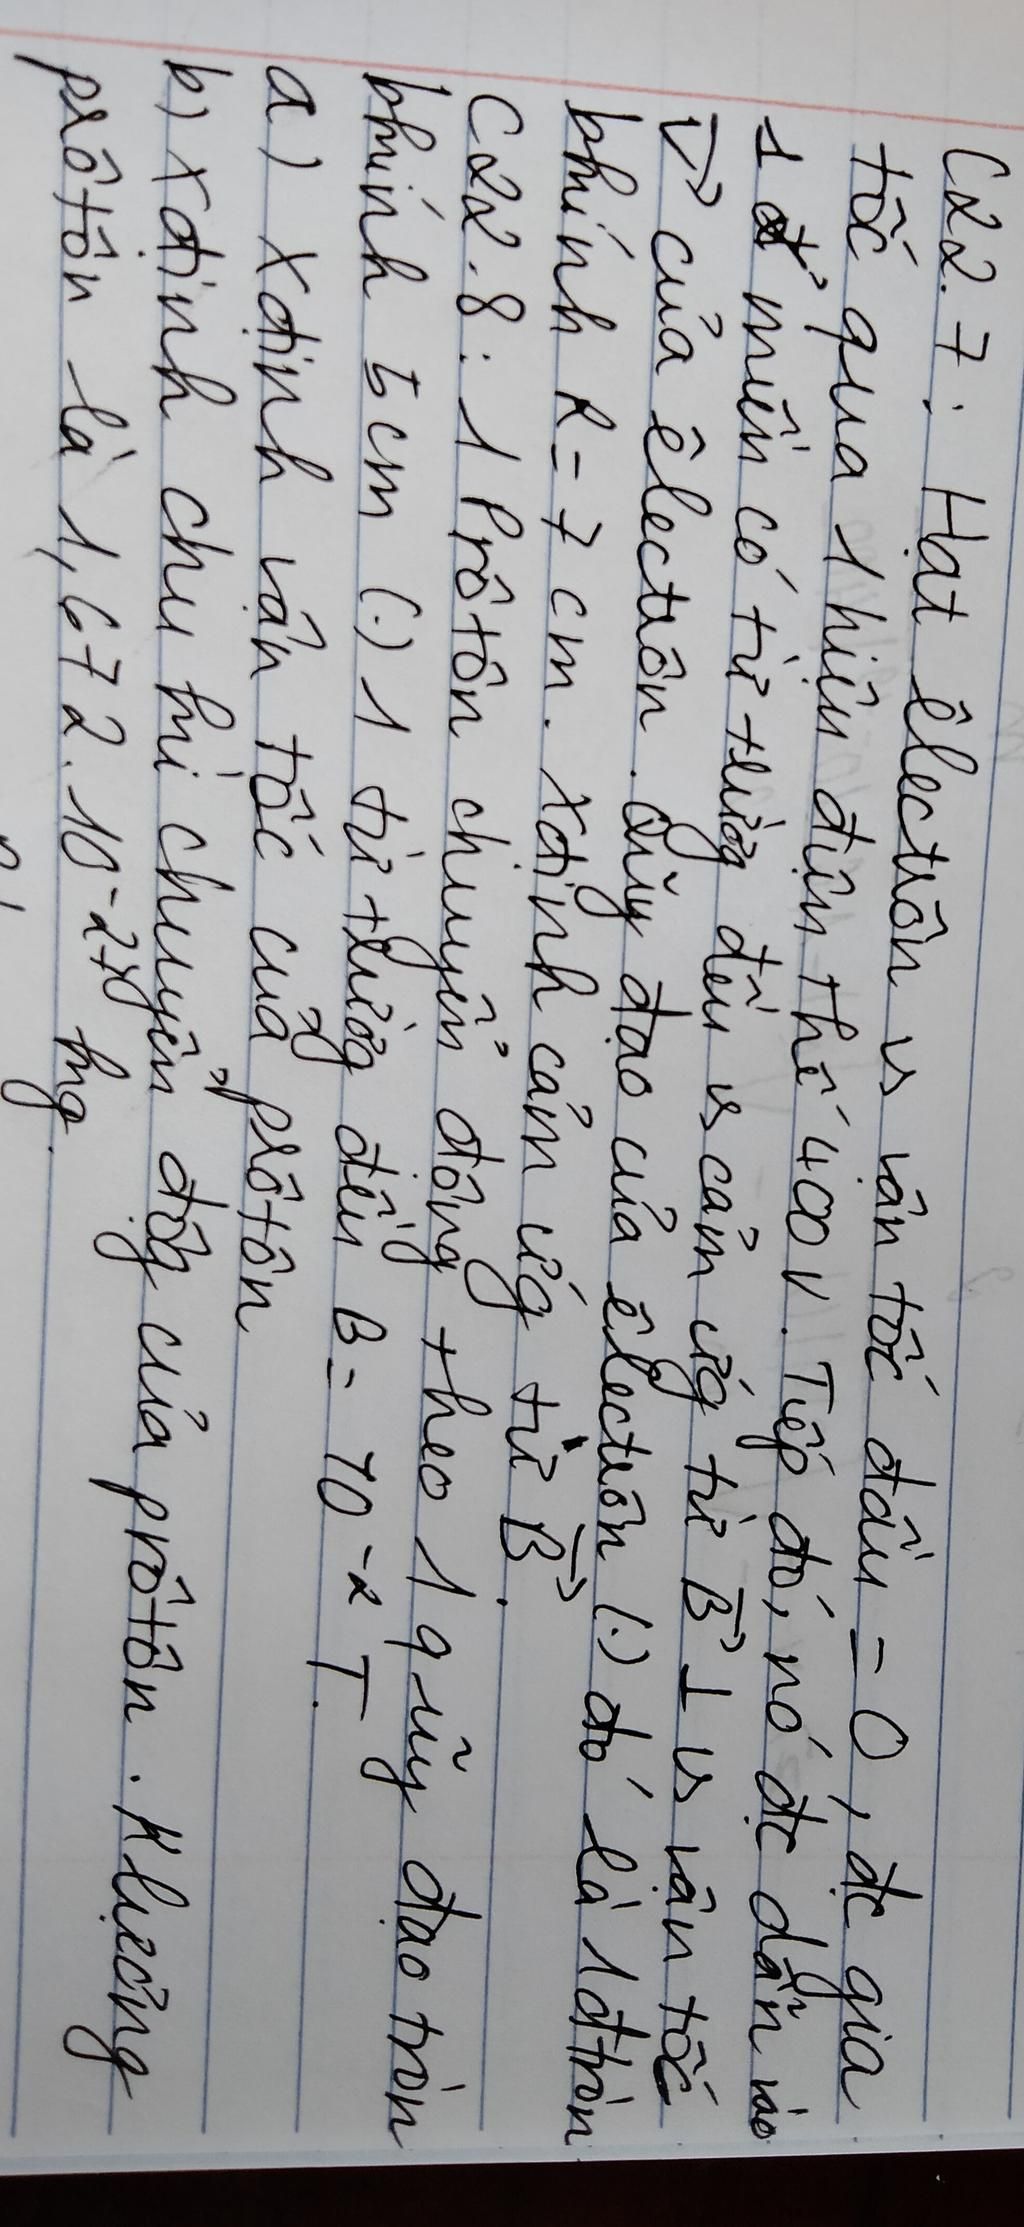 C22.7: Hạt êlectrôn vs vận tốc đầu = 0, đc gia
tốc qua 1 hiệu điện thế 400V. Tiếp đó, nó đc dẫn vào
1 miền có từ trường đều vs cảm ứg từ B→ ⊥ vs vận tốc
V→ của êlectrôn. Qũy đạo của êlectrôn (.) đó là 1 đtròn
bkính R = 7 cm. Xđịnh cảm ứg từ B→.
C22.8: 1 Prôtôn chuyển động theo 1 qũy đạo tròn
bkính 5cm (.) 1 từ trườg đều B = 10-2 T.
a) Xđịnh vận tốc của prôtôn
b) Xđịnh chu kì chuyển độg của prôtôn. Klượng
prôtôn là 1,672.10-27 kg.